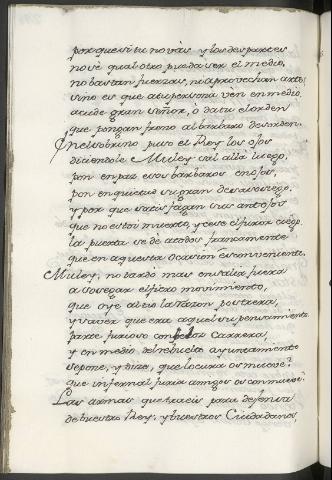 porque si tu no vas y los despartes
no sé qual otro pueda ser el medio,
no bastan fuerzas, ni aprovechan artes
sino es que a tu persona ven en medio
acude gran señor, o da tu el orden
que pongan freno al barbaro desorden.
En el sobrino puso el Rey los ojos
diciendole Muley sal allá luego,
pon en paz esos barbaros enojos,
pon en quietud su gran desasosiego,
y por que satisfagan sus antojos
que no estoi muerto, y cese el furor ciego
la puerta se dé a todos francamente
que en aquesta ocasion es conveniente.
Muley, no tardó mas en salir fuera
a sosegar el fiero movimiento,
que oye al tio la razon postrera,
y va a ver que era aquel su pensamiento
parte furioso con feloz carrera,
y en medio del rebuelto ayuntamiento
se pone, y dize, que locura os mueve?
que infernal furia amigos os conmueve?
Las armas que traeis para defensa
de buestro Rey, y buestros Ciudadanos,